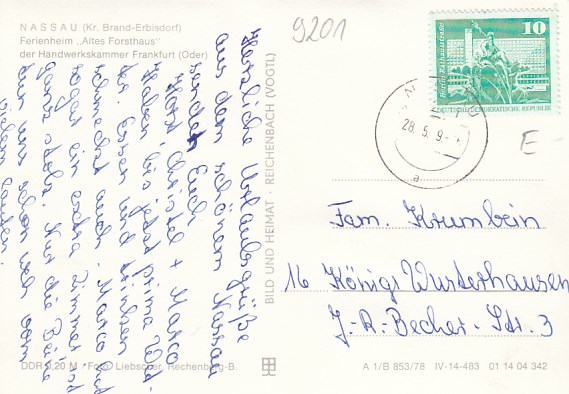 NASSAU (Kr. Brand-Erbisdorf)
Ferienheim „Altes Forsthaus"
der Handwerkskammer Frankfurt (Oder)
9201
Herzliche Urlaubsgrüße
aus dem schönem Nassau
senden Euch
Horst Christel + Marco
Haben bis jetzt prima Wet-
ter. Essen und trinken
schmeckt auch. Marco hat
sogar ein extra Zimmer ist
ganz stolz. Nur die Beine
tun uns schon weh vom
vielen laufen.
BILD UND HEIMAT · REICHENBACH (VOGTL)
10
Berlin, Rathausstraße
DEUTSCHE DEMOKRATISCHE REPUBLIK
28.5.9-
a
E-
Fam. Krumbein
16 Königs Wusterhausen
J.-R.-Becher-Str. 3
DDR 0,20 M · Foto: Liebscher, Rechenberg-B.
A 1/B 853/78 IV-14-483 01 14 04 342